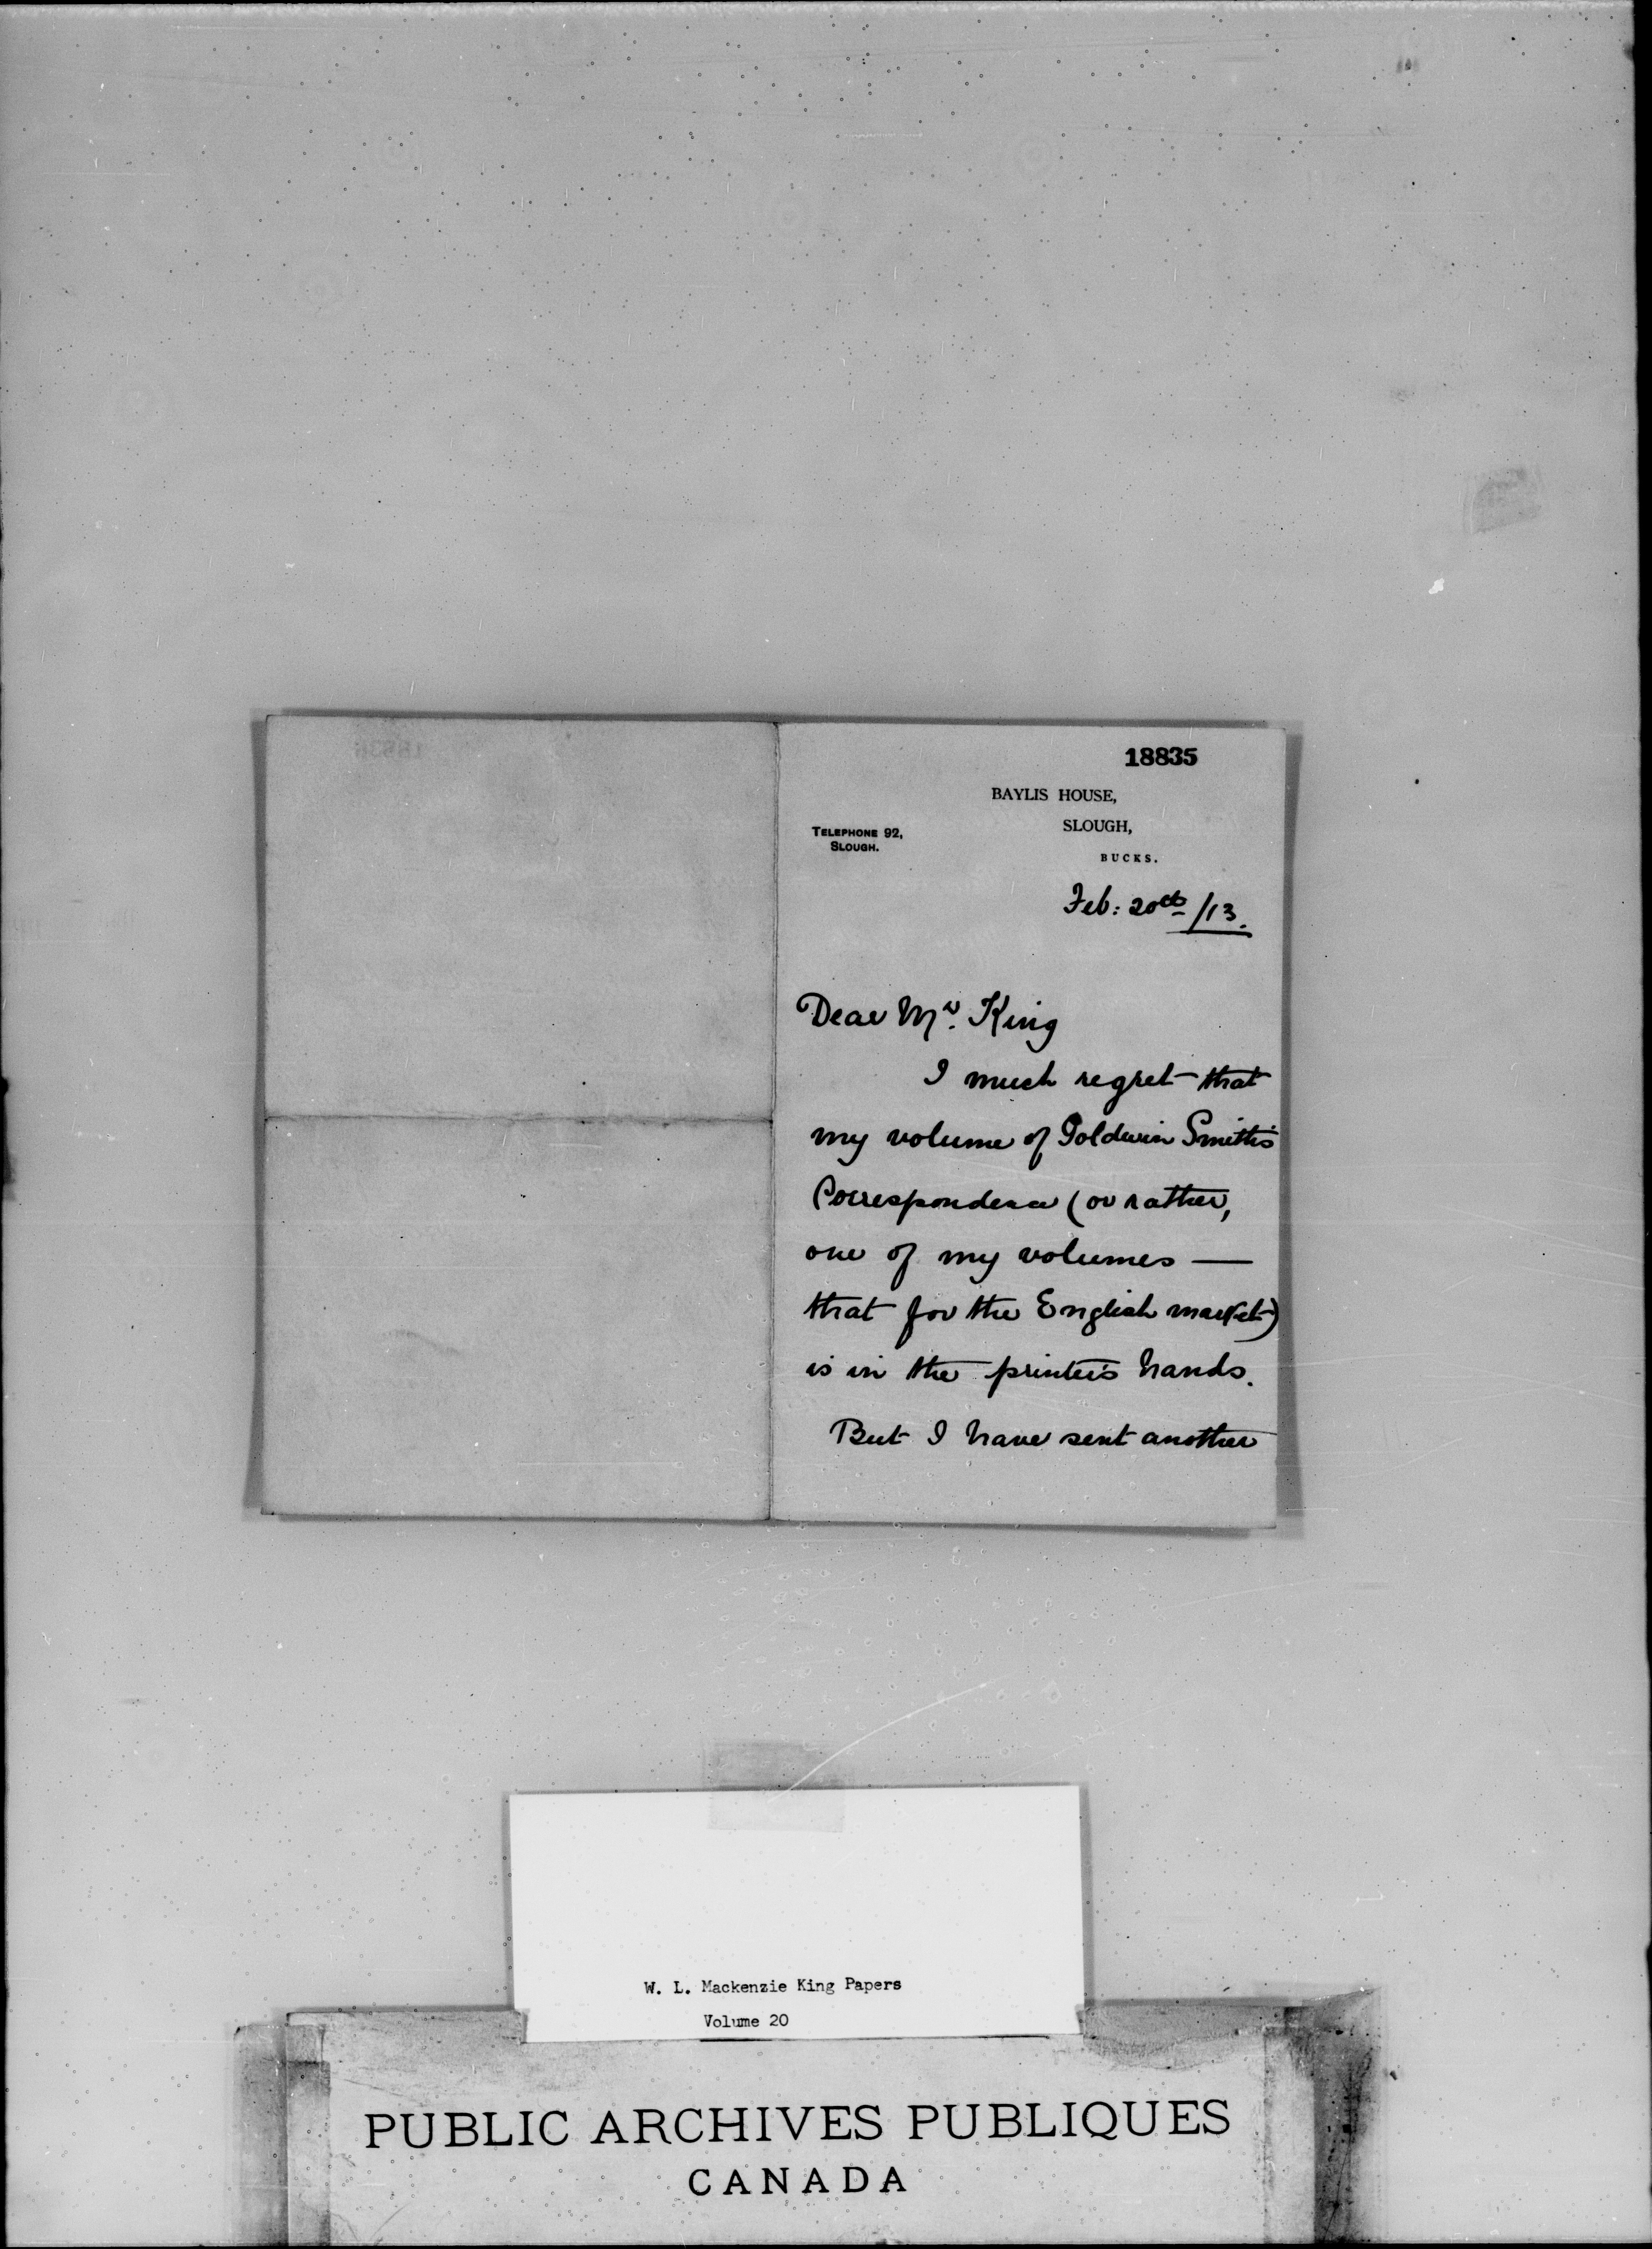 18835
BAYLIS HOUSE,
TELEPHONE 92,
SLOUGH.
SLOUGH,
BUCKS.
Feb: 20th /13.
Dear Mr. King
I much regret that
my volume of Goldwin Smith's
Correspondence (or rather,
one of my volumes —
that for the English market)
is in the printer's hands.
But I have sent another
W. L. Mackenzie King Papers
Volume 20
PUBLIC ARCHIVES PUBLIQUES
CANADA